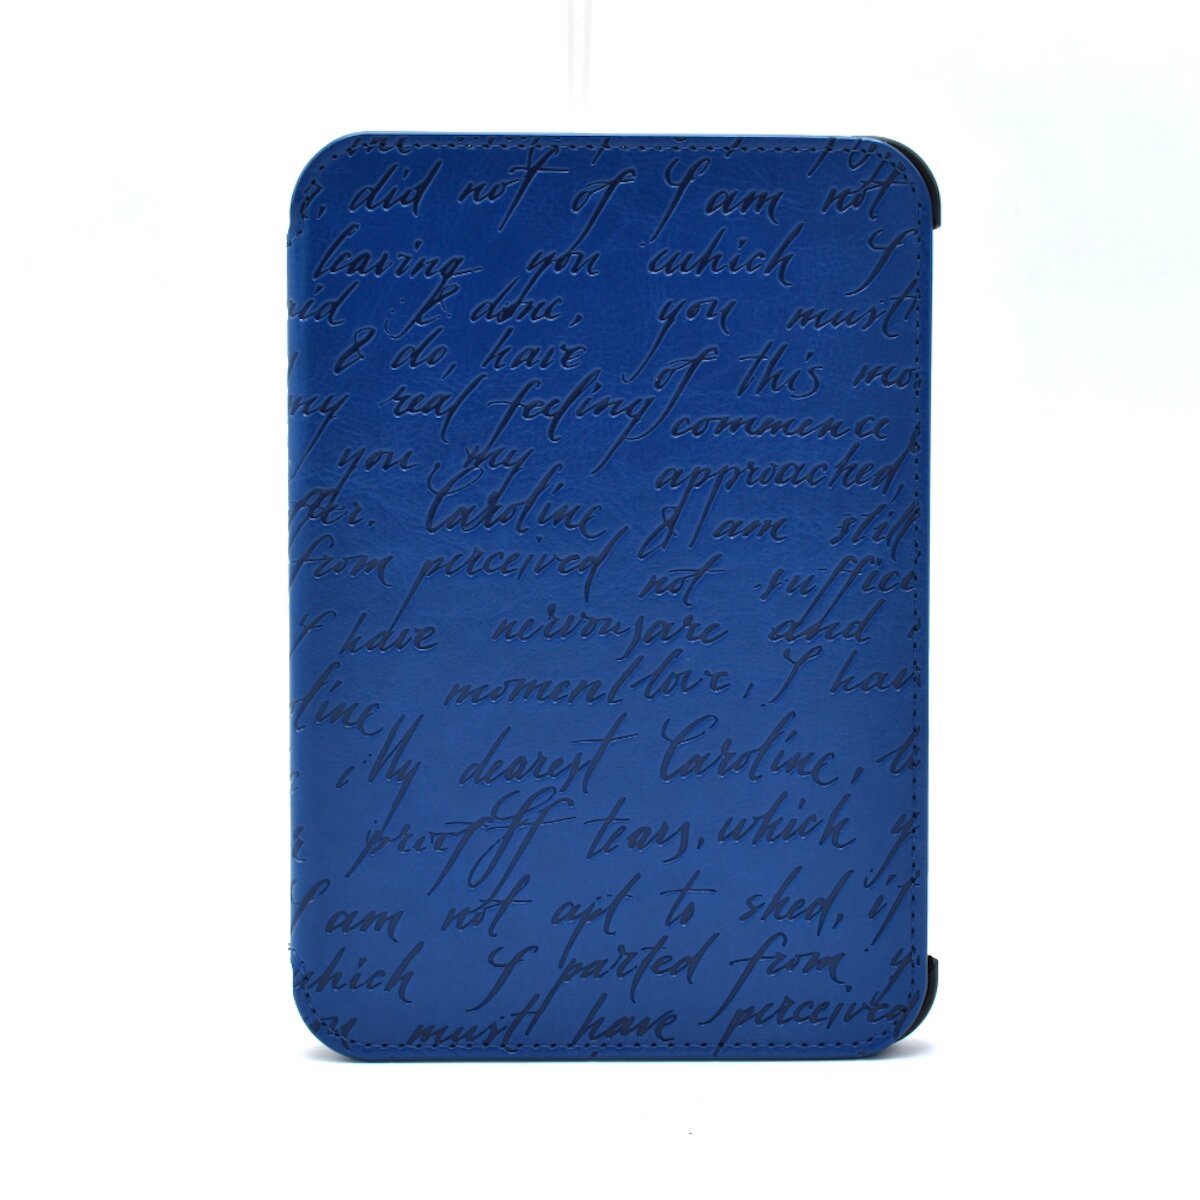 did not of I am not
leaving you which I
& done, you must
& do, have of this mo
my real feeling commence
you, my approached,
Caroline & am still
from perceived not suffice
I have nervous are and
moment love, I have
My dearest Caroline,
tears, which y
I am not apt to shed, if
which I parted from y
must have perceived